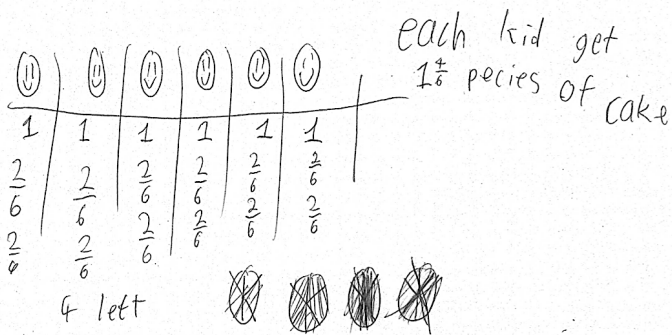 each kid get
1 4/6 pecies of cake
1 1 1 1 1 1
2/6 2/6 2/6 2/6 2/6 2/6
2/6 2/6 2/6 2/6 2/6 2/6
4 left